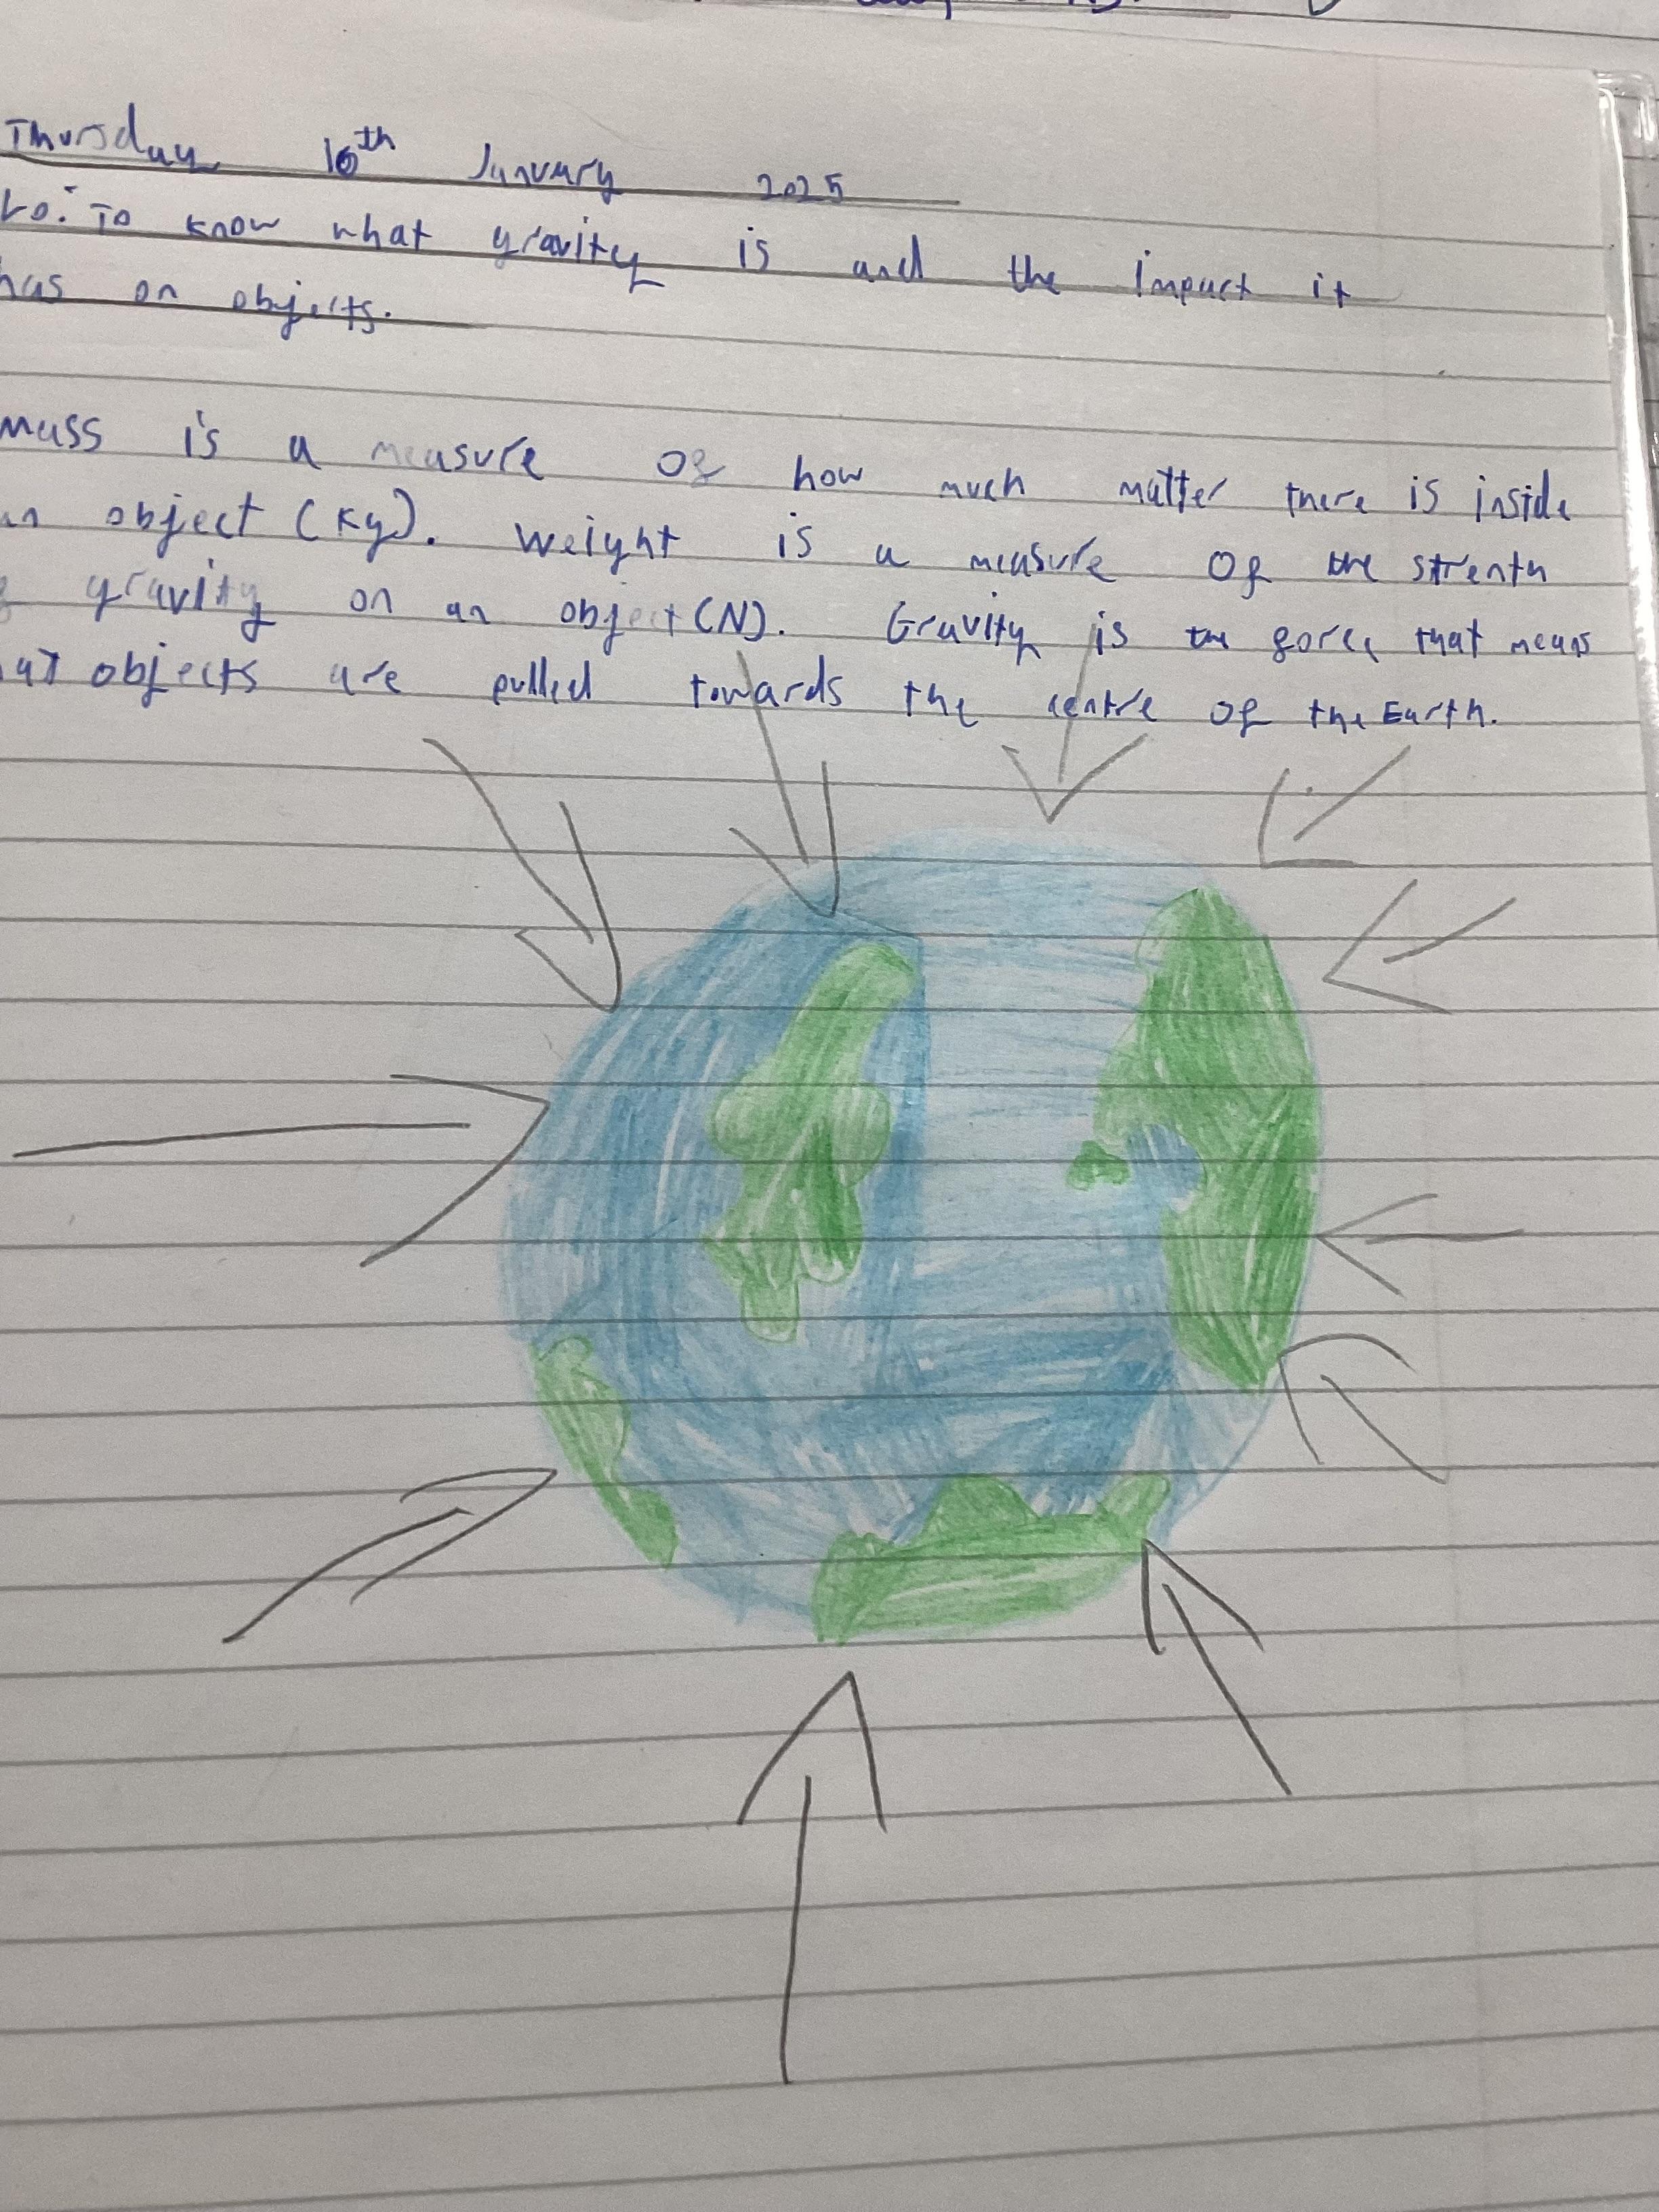 Thursday 16th January 2025
Lo: To know what gravity is and the impact it
has on objects.
Mass is a measure of how much matter there is inside
an object (kg). Weight is a measure of the strenth
gravity on an object (N). Gravity is the force that means
objects are pulled towards the centre of the Earth.